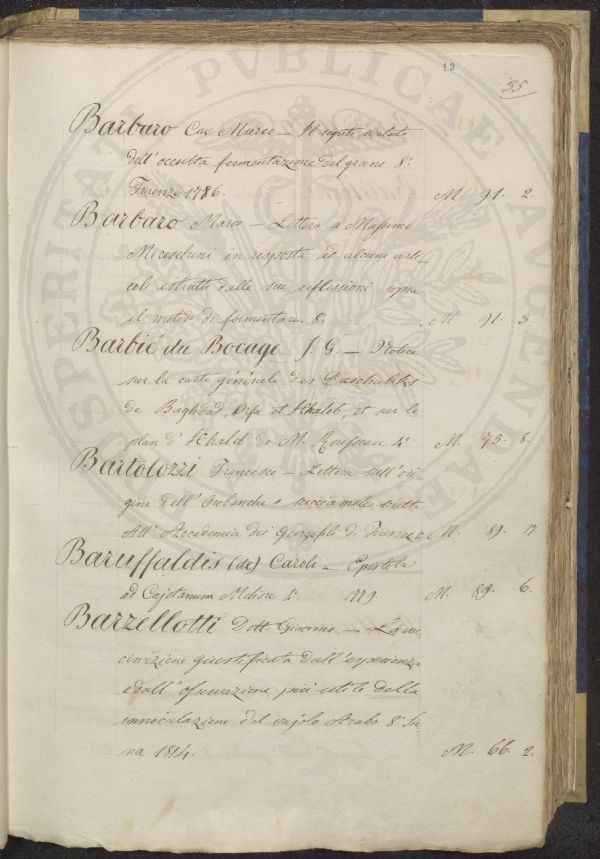 PROSPERITATI PVBLICAE AVGENDAE
19
35
Barbaro Cav Marco — Il segreto svelato
dell'occulta fermentazione del grano 8.°
Firenze 1786. M. 91. 2.
Barbaro Marco — Lettera a Massimo
in risposta ad alcuni arti-
coli estratti dalle sue riflessioni sopra
il metodo di fermentare. 8.° M. 91. 3.
Barbié du Bocage J. G. — Notice
sur la carte générale des Paschaliks
de Baghdad, Orfa et Khaleb, et sur le
plan d'Khaleb de M. Rousseau 4.° M. 75. 8.
Bartolozzi Francesco — Lettera sull'ori-
gine dell'Orobanche o succiamele, scritta
All'Accademia dei Georgofili di Firenze M. 89. 17
Baruffaldis (de) Caroli — Epistola
ad Cajetanum 4.° 1779. M. 89. 6.
Barzellotti Dott. Giacomo — La vac-
cinizione giustificata dall'esperienza,
e dall'osservazione più utile della
innoculazione del vajolo Arabo 8.° Sie
na 1814. M. 66. 2.